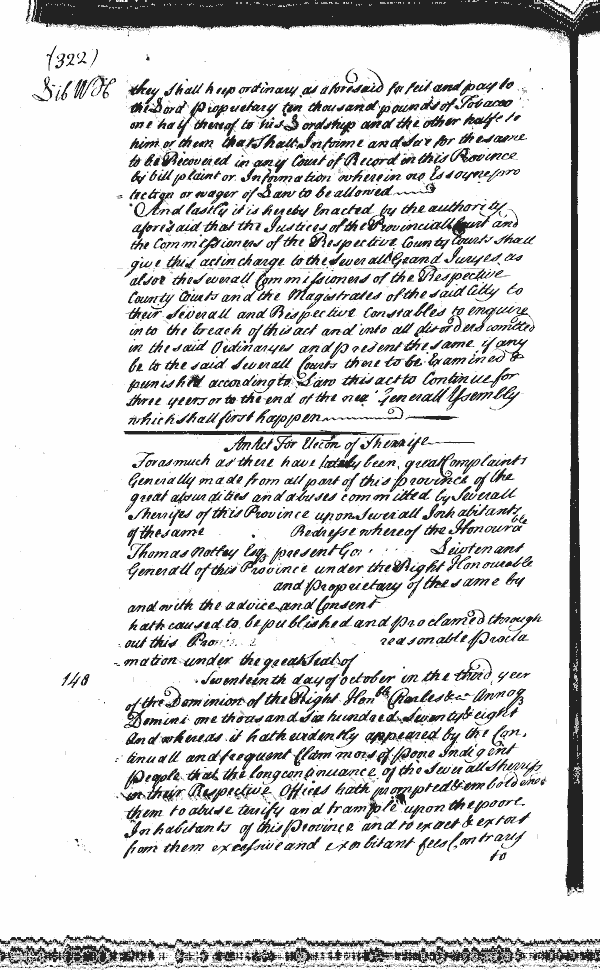 (322)
Lib WH
they shall keep ordinary as aforesaid forfeit and pay to
the Lord Proprietary ten thousand pounds of Tobacco
one half thereof to his Lordship and the other halfe to
him or them that shall Informe and Sue for the same
to be Recovered in any Court of Record in this Province
by bill plaint or Information wherein no Essoyne pro
tection or wager of Law to be allowed
And lastly it is hereby Enacted by the authority
aforesaid that the Justices of the Provinciall Court and
the Commissioners of the Respective County Courts shall
give this act in charge to the Severall Grand Juryes, as
alsoe the Severall Commissioners of the Respective
County Courts and the Magistrates of the said Citty to
their Severall and Respective Constables to enquire
into the breach of this act and into all disorders comitted
in the said Ordinaryes and present the same if any
be to the said Severall Courts there to be Examined &
punished according to Law this act to Continue for
three yeers or to the end of the nex Generall Assembly
which shall first happen
An Act For Elecon of Sherriffe
Forasmuch as there have lately been great Complaints
Generally made from all part of this province of the
great absurdities and abuses committed by Severall
Sherrifes of this Province upon Severall Inhabitants
of the same Redresse whereof the Honourable
Thomas Notley Esq present Go Leiwtenant
Generall of this Province under the Right Honoueable
and Proprietary of the same by
and with the advice and Consent
hath caused to be published and proclamed through
out this Pro reasonable Procla
mation under the great Seal of
148
Seventeenth day of october in the third year
of the Dominion of the Right Honble Charles &ca Annoq
Domini one thousand Six hundred Seventy & eight
And whereas it hath evidently appeared by the Con,
tinuall and frequent Clammors of Pore Indigent
People that the long continuance of the Severall Sherriffs
in their Respective Offices hath prompted & emboldened
them to abuse terrify and trample upon the poore
Inhabitants of this Province and to exact & extort
from them excessive and exorbitant fees Contrary
to